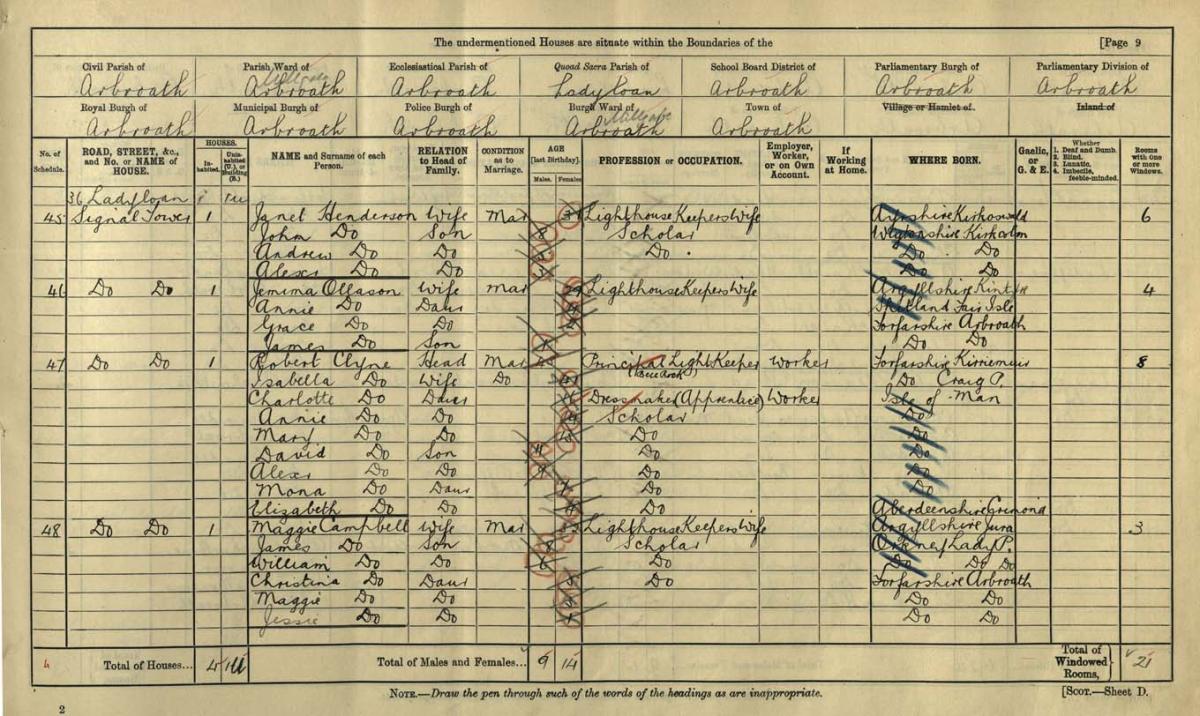 The undermentioned Houses are situate within the Boundaries of the [Page 9
Civil Parish of Parish Ward of Ecclesiastical Parish of Quoad Sacra Parish of School Board District of Parliamentary Burgh of Parliamentary Division of
Arbroath Arbroath Arbroath Ladyloan Arbroath Arbroath Arbroath
Royal Burgh of Municipal Burgh of Police Burgh of Burgh Ward of Town of Village or Hamlet of Island of
Arbroath Arbroath Arbroath Arbroath Arbroath
No. of Schedule. ROAD, STREET, &c., and No. or NAME of HOUSE. HOUSES. Inhabited. Uninhabited (U.), or Building (B.) NAME and Surname of each Person. RELATION to Head of Family. CONDITION as to Marriage. AGE [last Birthday]. Males. Females. PROFESSION or OCCUPATION. Employer, Worker, or on Own Account. If Working at Home. WHERE BORN. Gaelic, or G. & E. Whether 1. Deaf and Dumb. 2. Blind. 3. Lunatic. 4. Imbecile, feeble-minded. Rooms with One or more Windows.
36 Ladyloan 1u
45 Signal Tower 1 Janet Henderson Wife Mar Lighthouse Keepers Wife Ayrshire Kirkoswald 6
John Do Son 8 Scholar Wigtonshire Kirkcolm
Andrew Do Do Do Do Do
Alexr Do Do Do Do
46 Do Do 1 Jemima Ollason Wife Mar 29 Lighthouse Keepers Wife Argyllshire Kintyre 4
Annie Do Daur Shetland Fair Isle
Grace Do Do Forfarshire Arbroath
James Do Son Do Do
47 Do Do 1 Robert Clyne Head Mar Principal Light Keeper Worker Forfarshire Kirriemuir 8
(Bell Rock)
Isabella Do Wife Do Do Craig P.
Charlotte Do Daur Dressmaker (Apprentice) Worker Isle of Man
Annie Do Do Scholar Do
Mary Do Do Do Do
David Do Son 11 Do Do
Alexr Do Do 9 Do Do
Mona Do Daur Do Do
Elizabeth Do Do Do Aberdeenshire
48 Do Do 1 Maggie Campbell Wife Mar Lighthouse Keepers Wife Argyllshire Jura 3
James Do Son 8 Scholar Orkney Lady P.
William Do Do 6 Do Do Do Do
Christina Do Daur 5 Do Forfarshire Arbroath
Maggie Do Do 3 Do Do
Jessie Do Do 1 Do Do
4 Total of Houses... 4 1u Total of Males and Females... 9 14 Total of Windowed Rooms, 21
NOTE.—Draw the pen through such of the words of the headings as are inappropriate. [SCOT.—Sheet D.
2